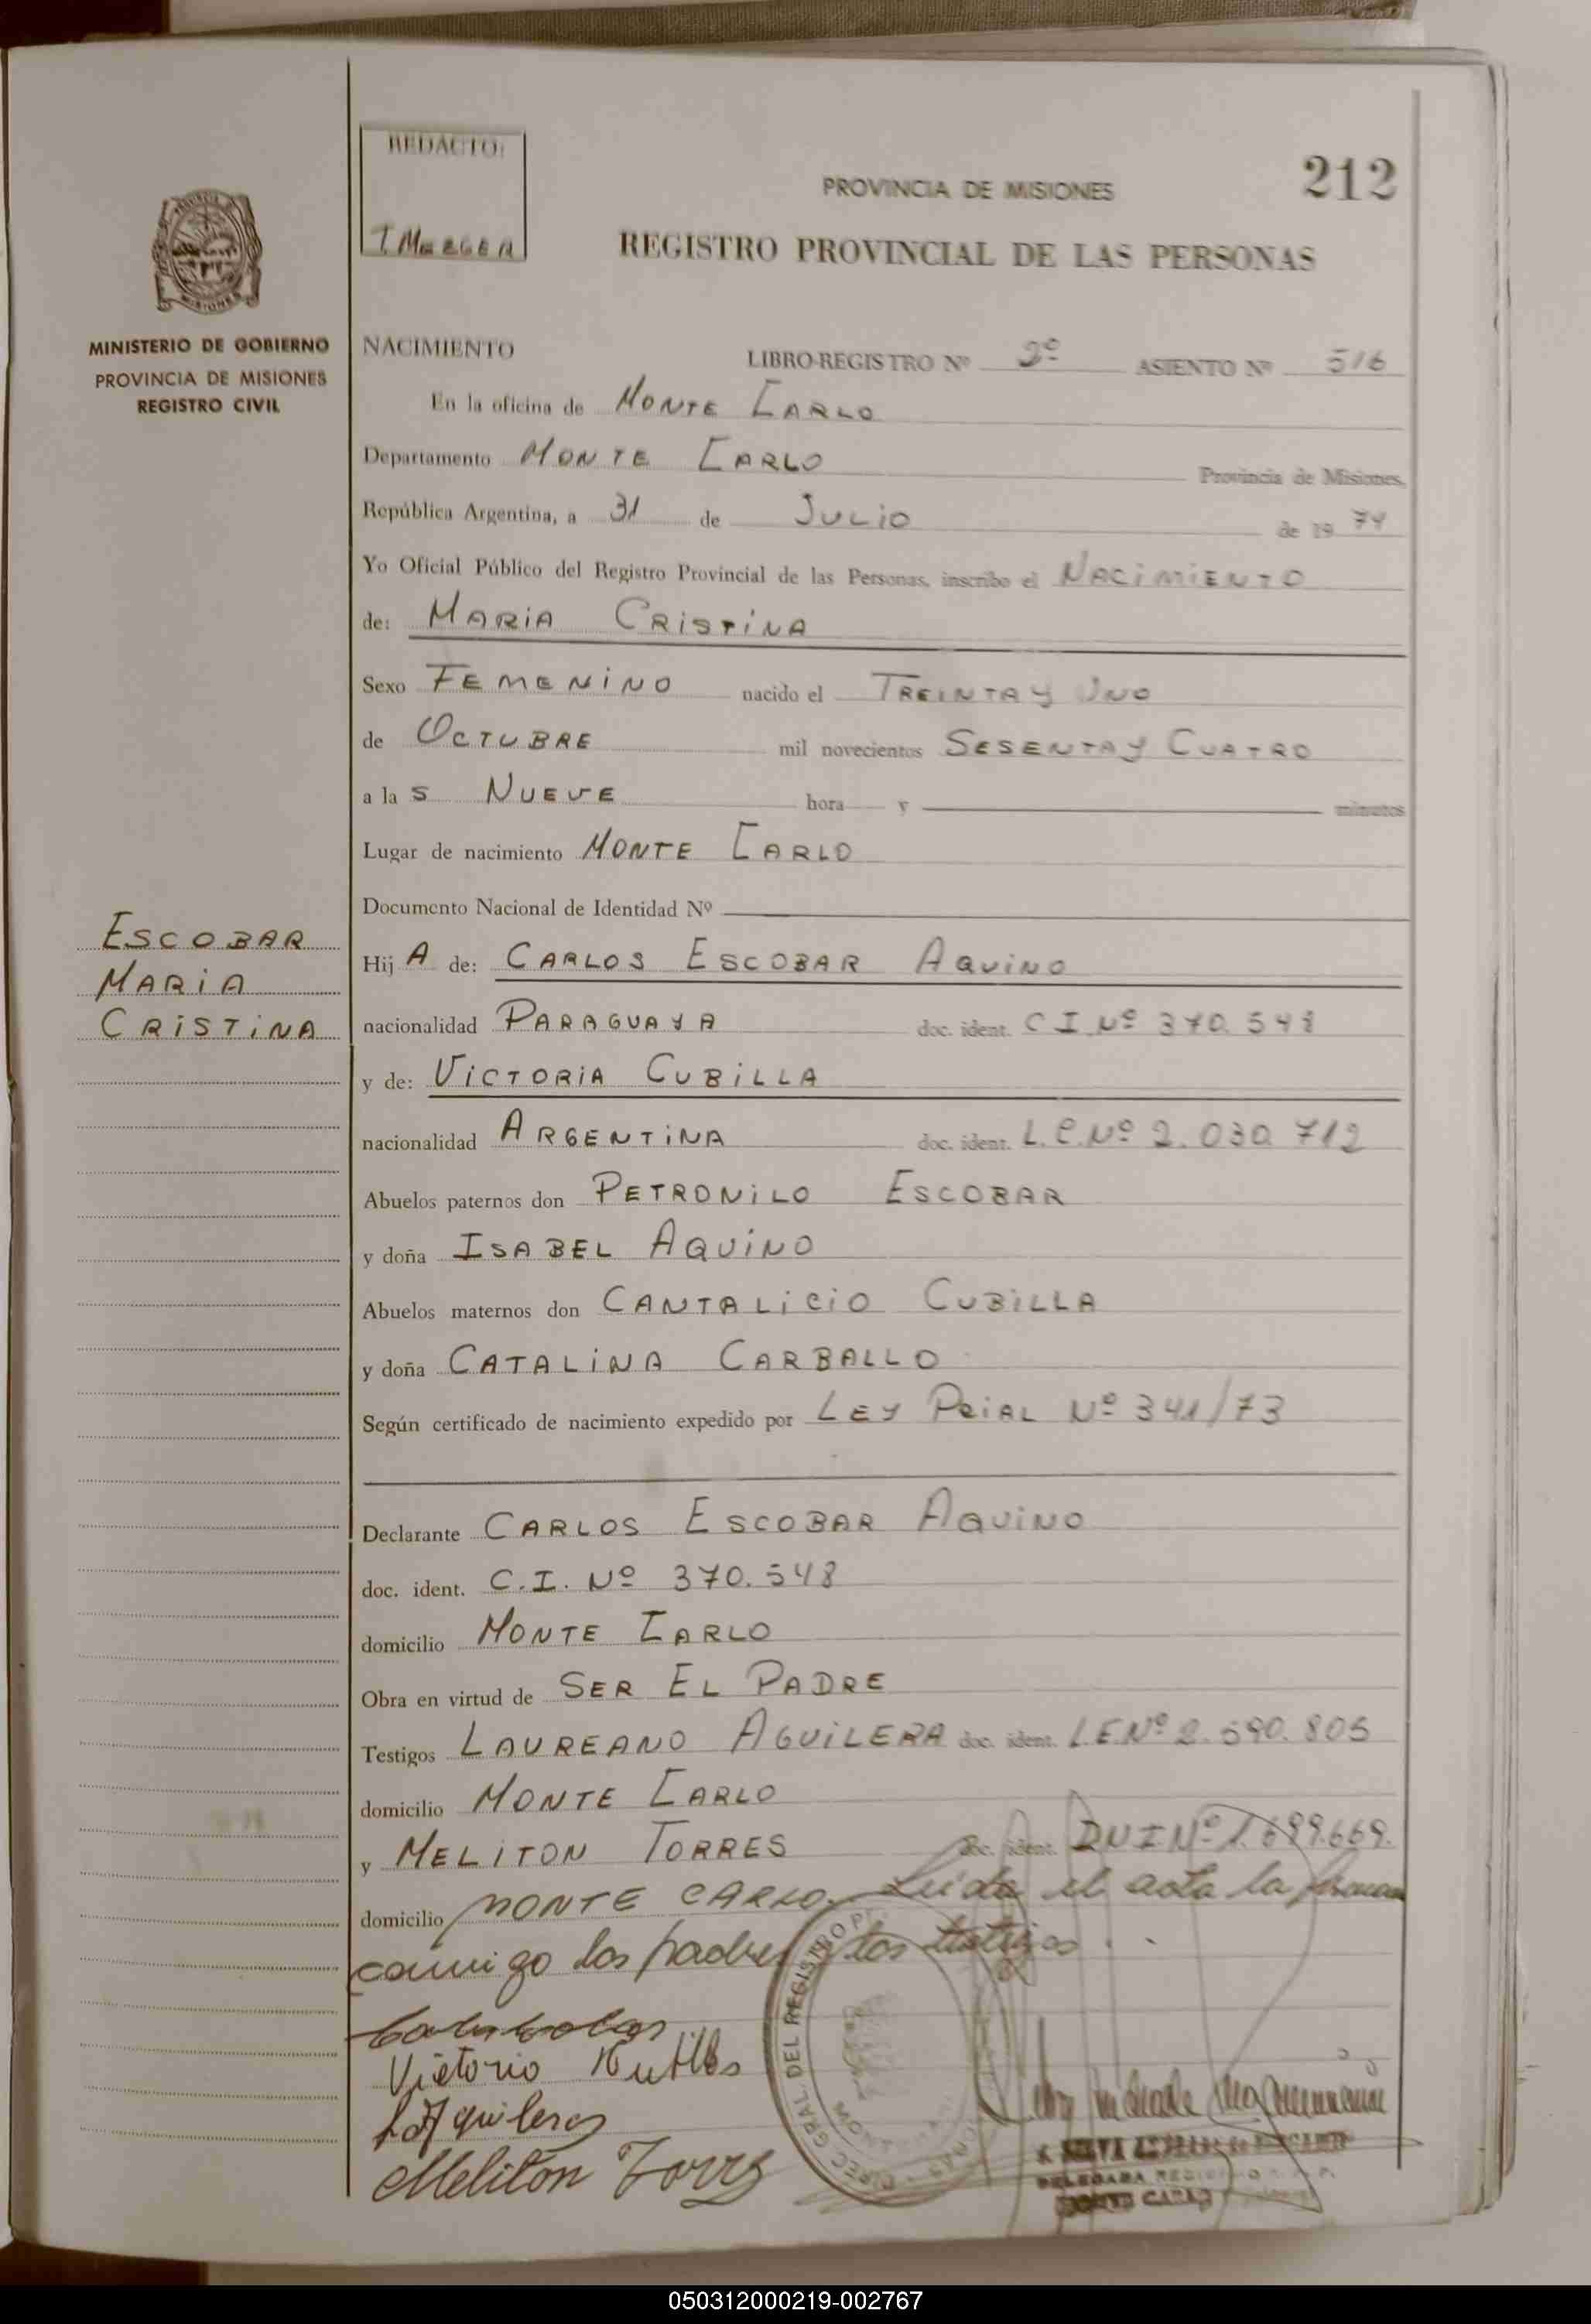 REDACTO:
PROVINCIA DE MISIONES
212
REGISTRO PROVINCIAL DE LAS PERSONAS
MINISTERIO DE GOBIERNO
PROVINCIA DE MISIONES
REGISTRO CIVIL
NACIMIENTO
LIBRO-REGISTRO Nº 2º ASIENTO Nº 516
En la oficina de MONTE CARLO
Departamento MONTE CARLO Provincia de Misiones,
República Argentina, a 31 de JULIO de 19 74
Yo Oficial Público del Registro Provincial de las Personas, inscribo el NACIMIENTO
de: MARIA CRISTINA
Sexo FEMENINO nacido el TREINTA Y UNO
de OCTUBRE mil novecientos SESENTA Y CUATRO
a la s NUEVE hora y minutos
Lugar de nacimiento MONTE CARLO
Documento Nacional de Identidad Nº
ESCOBAR
MARIA
CRISTINA
Hij A de: CARLOS ESCOBAR AQUINO
nacionalidad PARAGUAYA doc. ident. C I Nº 370.548
y de: VICTORIA CUBILLA
nacionalidad ARGENTINA doc. ident. L.C.Nº 2.030.712
Abuelos paternos don PETRONILO ESCOBAR
y doña ISABEL AQUINO
Abuelos maternos don CANTALICIO CUBILLA
y doña CATALINA CARBALLO
Según certificado de nacimiento expedido por LEY PCIAL Nº 341/73
Declarante CARLOS ESCOBAR AQUINO
doc. ident. C.I. Nº 370.548
domicilio MONTE CARLO
Obra en virtud de SER EL PADRE
Testigos LAUREANO AGUILERA doc. ident. L.E.Nº 2.590.805
domicilio MONTE CARLO
y MELITON TORRES doc. ident. DNI Nº 1.699.669.
domicilio MONTE CARLO. Leida el acta la firman
conmigo los padres y los testigos.
Victoria
L Aguilera
Meliton Torres
DIREC. GRAL. DEL REGISTRO
MONTE CARLO
050312000219-002767